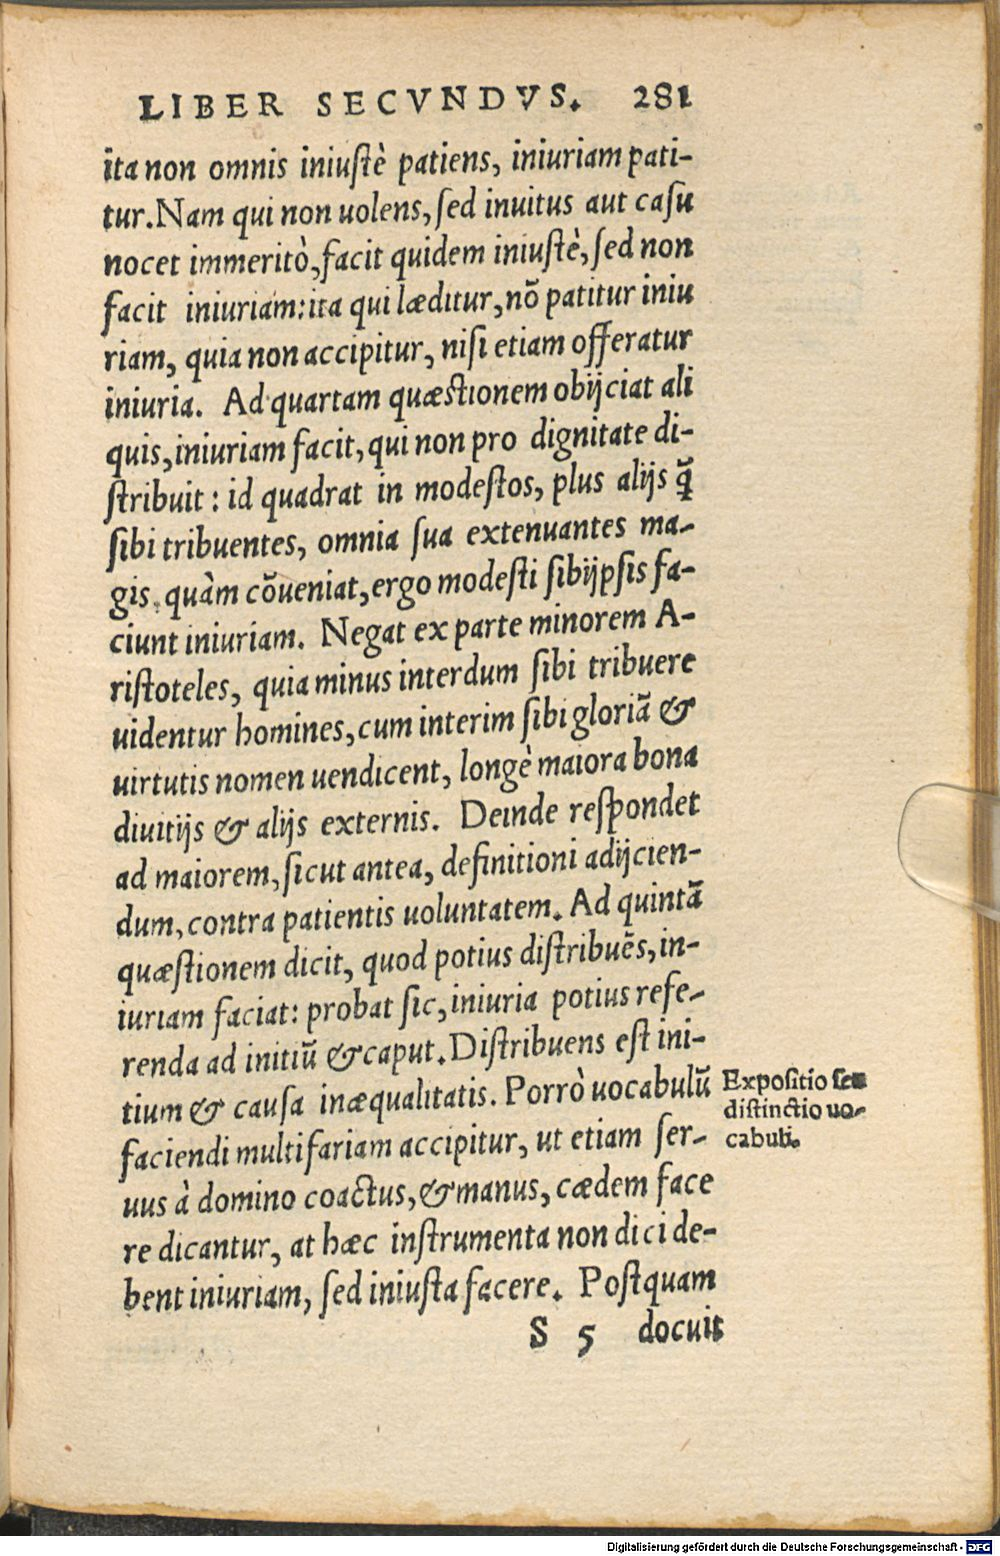 LIBER SECVNDVS. 281
ita non omnis iniustè patiens, iniuriam pati-
tur. Nam qui non uolens, sed inuitus aut casu
nocet immeritò, facit quidem iniustè, sed non
facit iniuriam: ita qui læditur, nõ patitur iniu
riam, quia non accipitur, nisi etiam offeratur
iniuria. Ad quartam quæstionem obijciat ali
quis, iniuriam facit, qui non pro dignitate di-
stribuit: id quadrat in modestos, plus alijs q̃
sibi tribuentes, omnia sua extenuantes ma-
gis, quàm cõueniat, ergo modesti sibijpsis fa-
ciunt iniuriam. Negat ex parte minorem A-
ristoteles, quia minus interdum sibi tribuere
uidentur homines, cum interim sibi gloriã &
uirtutis nomen uendicent, longè maiora bona
diuitijs & alijs externis. Deinde respondet
ad maiorem, sicut antea, definitioni adijcien-
dum, contra patientis uoluntatem. Ad quintã
quæstionem dicit, quod potius distribuẽs, in-
iuriam faciat: probat sic, iniuria potius refe-
renda ad initiũ & caput. Distribuens est ini-
tium & causa inæqualitatis. Porrò uocabulũ
faciendi multifariam accipitur, ut etiam ser-
uus à domino coactus, & manus, cædem face
re dicantur, at hæc instrumenta non dici de-
bent iniuriam, sed iniusta facere. Postquam
S 5 docuit
Expositio seu
distinctio uo-
cabuli.
Digitalisierung gefördert durch die Deutsche Forschungsgemeinschaft - DFG